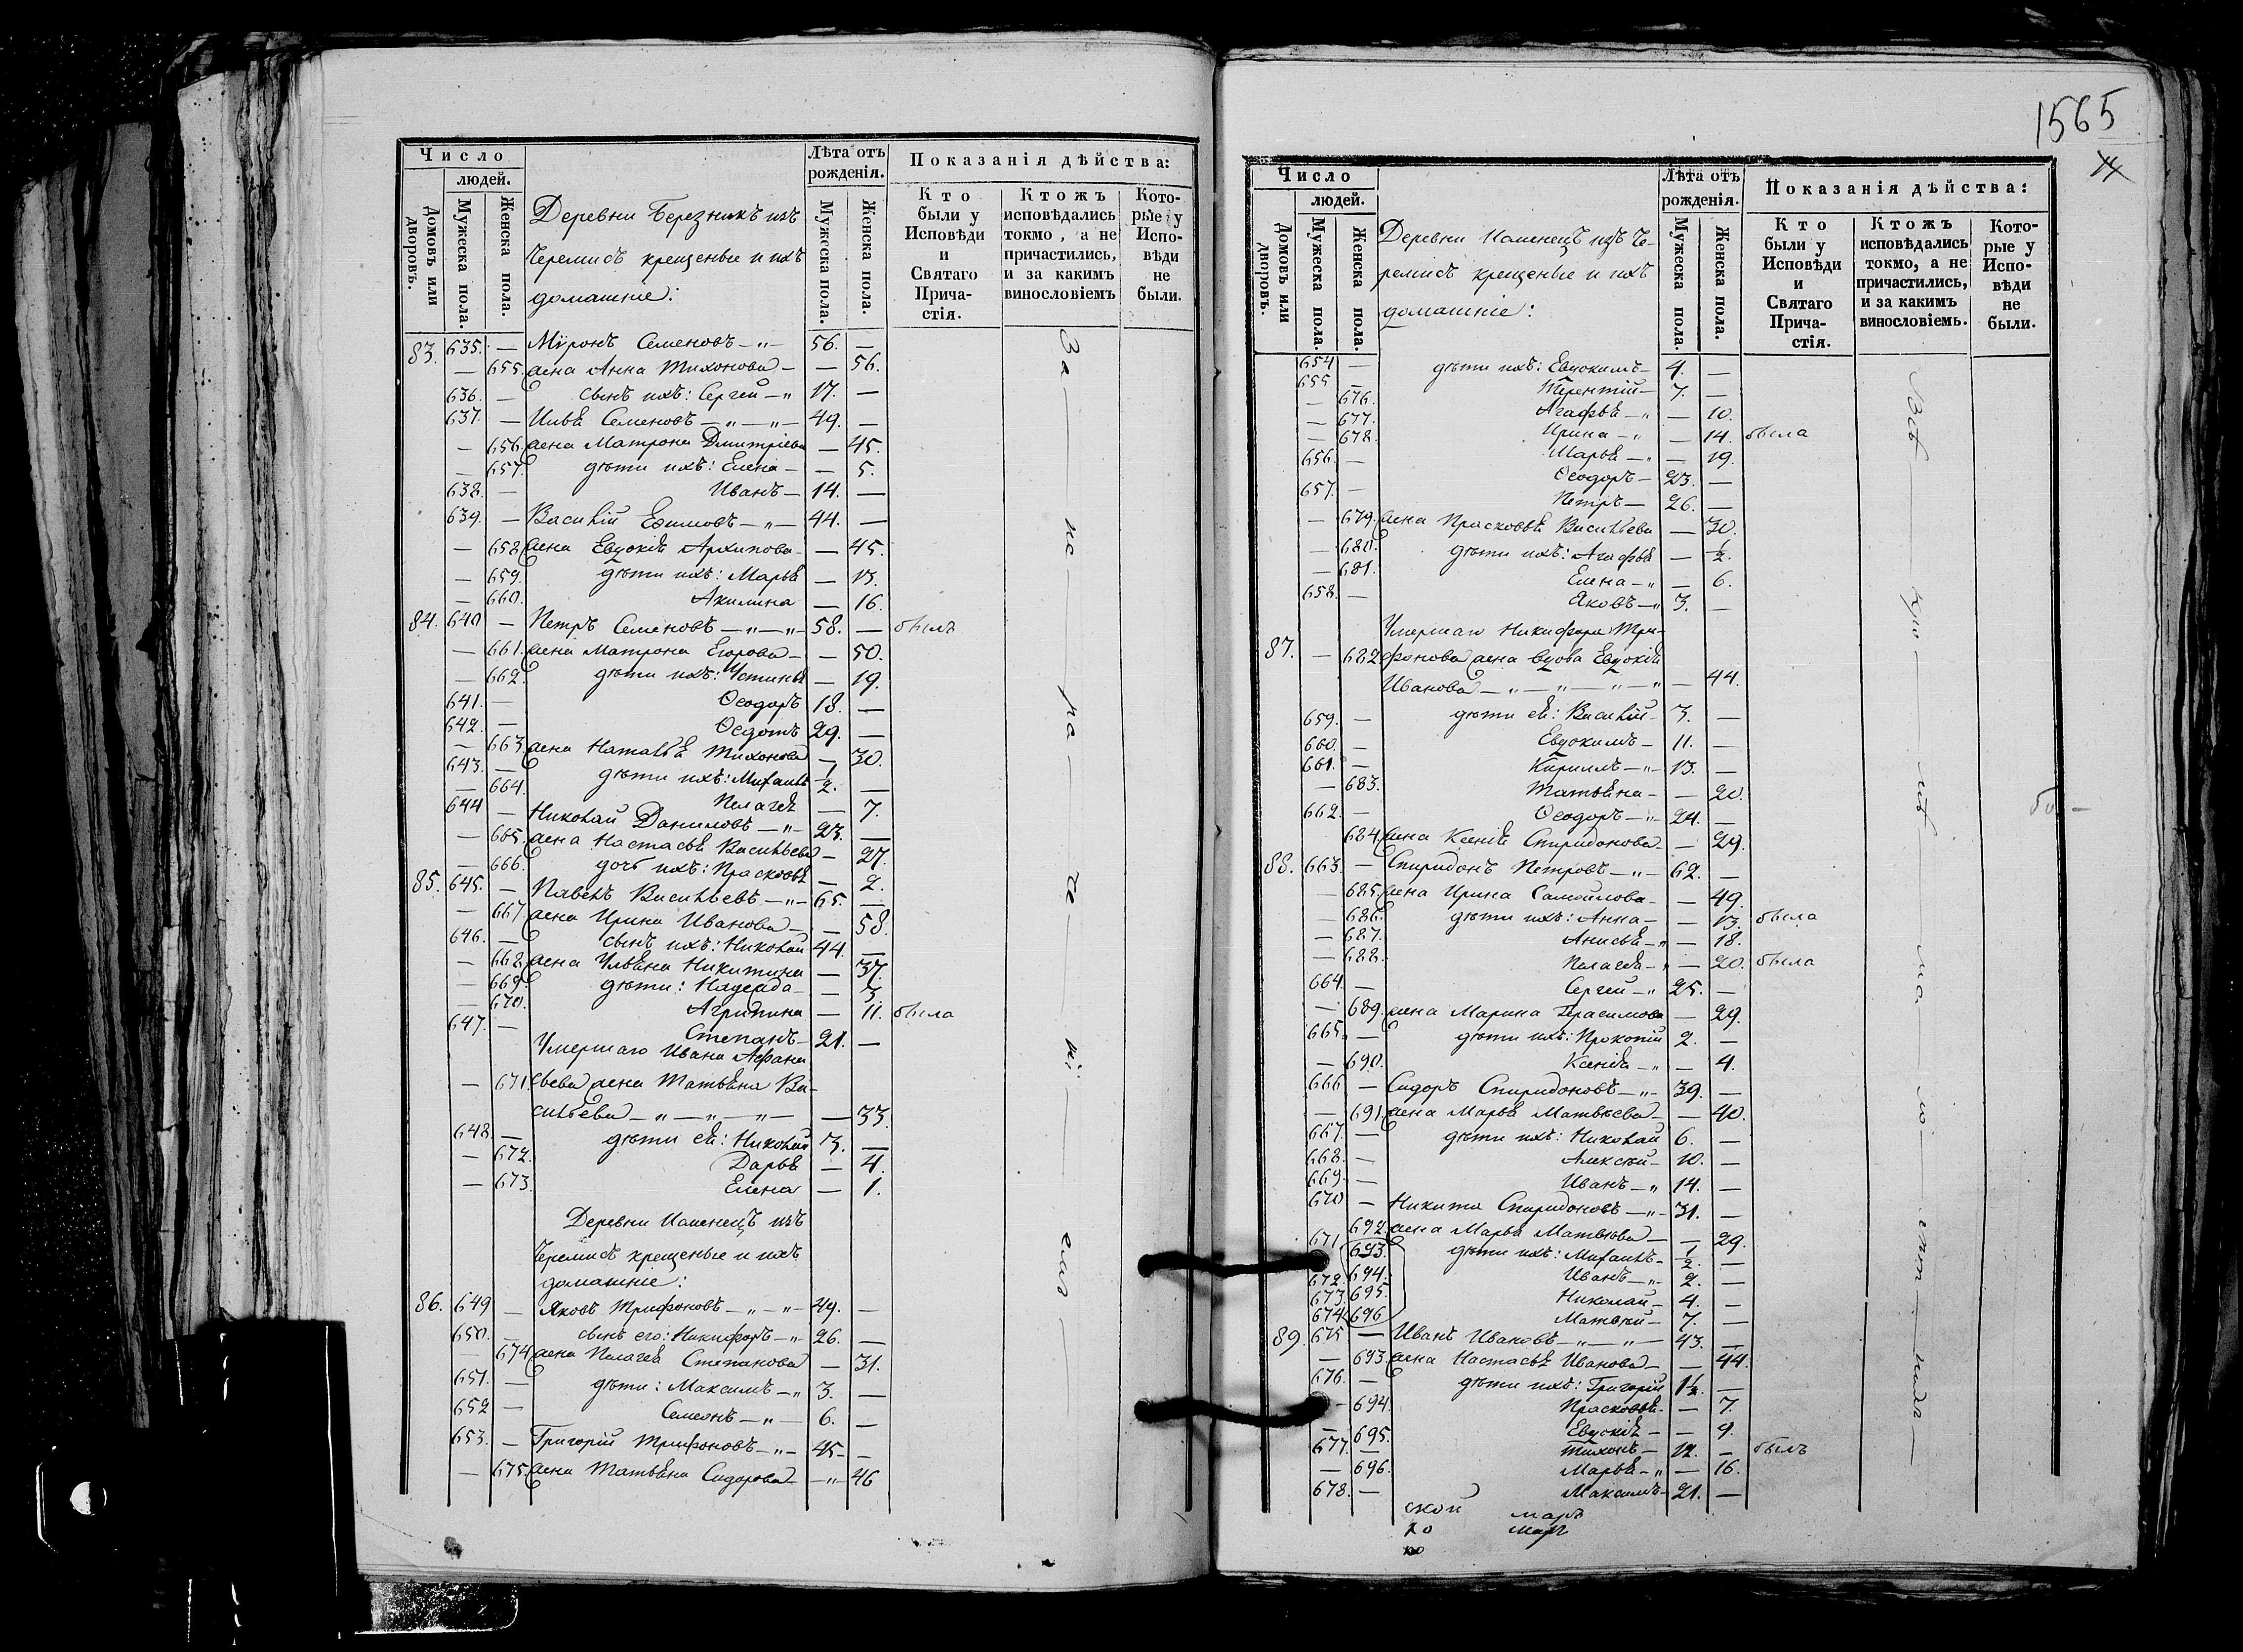 Число
людей.
Домовъ или дворовъ.
Мужеска пола.
Женска пола.
Деревни Березникъ изъ
Черемисъ крещеные и ихъ
домашніе:
Лѣта отъ рожденія.
Мужеска пола.
Женска пола.
Показанія дѣйства:
Кто были у Исповѣди и Святаго Причастія.
Ктожъ исповѣдались токмо, а не причастились, и за какимъ винословіемъ
Которые у Исповѣди не были.
83. 635. — Миронъ Семеновъ — 56. —
— 655. жена Анна Тихонова — — 56.
636. — сынъ ихъ: Сергей — 17. —
637. — Семеновъ — 49. —
— 656. жена Матрона Дмитріева — 45.
— 657. дѣти ихъ: Елена — — 5.
638. — Иванъ — 14. —
639. — Василій Ефимовъ — 44. —
— 658. жена Евдокія Архипова — — 45.
— 659. дѣти ихъ: Марья — 13.
— 660. Акилина — 16.
84. 640 — Петръ Семеновъ — 58. — былъ
— 661. жена Матрона Егорова — — 50.
— 662. дѣти ихъ: Устинья — 19.
641. — Ѳеодоръ 18. —
642. — Ѳедотъ 29. —
— 663. жена Наталья Тихонова — 30.
643. — дѣти ихъ: Михаилъ 1/2. —
— 664. Пелагея — 7.
644 — Николай Даниловъ — 23. —
— 665. жена Настасья Васильева — 27.
— 666. дочь ихъ: Прасковья — 2.
85. 645. — Павелъ Васильевъ — 65. —
— 667 жена Ирина Иванова — — 58.
646. — сынъ ихъ: Николай 44. —
— 668. жена Ульяна Никитина — 37.
— 669. дѣти: Надежда — — 5.
— 670. Агрипина — 11. была
647. — Степанъ — 21. —
Умершаго Ивана Афана
— 671. сьева жена Татьяна Ва-
сильева — — 33.
648. — дѣти ея: Николай 3. —
— 672. Дарья — 4.
— 673. Елена — 1.
Деревни Каменецъ изъ
Черемисъ крещеные и ихъ
домашніе:
86. 649 — Яковъ Трифоновъ — 49. —
650. — сынъ его: Никифоръ — 26. —
674 жена Пелагея Степанова — 31.
651. — дѣти: Максимъ — 3. —
652 — Семенъ — 6. —
653. — Григорій Трифоновъ — 45 —
— 675. жена Татьяна Сидорова — 46
1565
Число
людей.
Домовъ или дворовъ.
Мужеска пола.
Женска пола.
Деревни Каменецъ изъ Че-
ремисъ крещеные и ихъ
домашніе:
Лѣта отъ рожденія.
Мужеска пола.
Женска пола.
Показанія дѣйства:
Кто были у Исповѣди и Святаго Причастія.
Ктожъ исповѣдались токмо, а не причастились, и за какимъ винословіемъ.
Которые у Исповѣди не были.
654 — дѣти ихъ: Евдокимъ — 4. —
655 — Терентій — 7. —
— 676. Агафья — — 10.
— 677. Ирина — — 14. была
— 678. Марья — — 19.
656. — Ѳеодоръ — 23. —
657. — Петръ — 26. —
— 679. жена Прасковья Васильева — 30.
— 680. дѣти ихъ: Агафья — 1/2.
— 681. Елена — — 6.
658. — Яковъ — 3. —
Умершаго Никифора Три-
87. — 682 фонова жена вдова Евдокія
Иванова — — 44.
659. — дѣти ея: Василій — 3. —
660. — Евдокимъ — 11. —
661. — Кирилъ — 13. —
— 683. Татьяна — — 20.
662. — Ѳеодоръ — 24. —
684. жена Ксенія Спиридонова — — 29.
88. 663. — Спиридонъ Петровъ — 62. —
— 685. жена Ирина Самойлова — — 49.
— 686. дѣти ихъ: Анна — — 13. была
— 687. Анисья — — 18.
— 688. Пелагея — — 20. была
664. — Сергей — 25. —
— 689. жена Марина Герасимова — 29.
665. — дѣти ихъ: Прокопій 2. —
— 690. Ксенія — — 4.
666 — Сидоръ Спиридоновъ — 39. —
— 691. жена Марья Матвѣева — — 40.
667. — дѣти ихъ: Николай 6. —
668. — Алексѣй — 10. —
669. — Иванъ — 14. —
670 — Никита Спиридоновъ — 31. —
692 жена Марья Матвѣева — — 29.
671 693. дѣти ихъ: Михаилъ — 1/2. —
672. 694. Иванъ — 2. —
673. 695. Николай — 4. —
674 696 Матвѣй — 7. —
89. 675 — Иванъ Ивановъ — 43. —
— 693 жена Настасья Иванова — — 44.
676. — дѣти ихъ: Григорій 1 1/2. —
— 694. Прасковья — — 7.
— 695. Евдокія — — 9.
677. — Тихонъ — 12. — былъ
— 696. Марья — — 16.
678. — Максимъ — 21. —